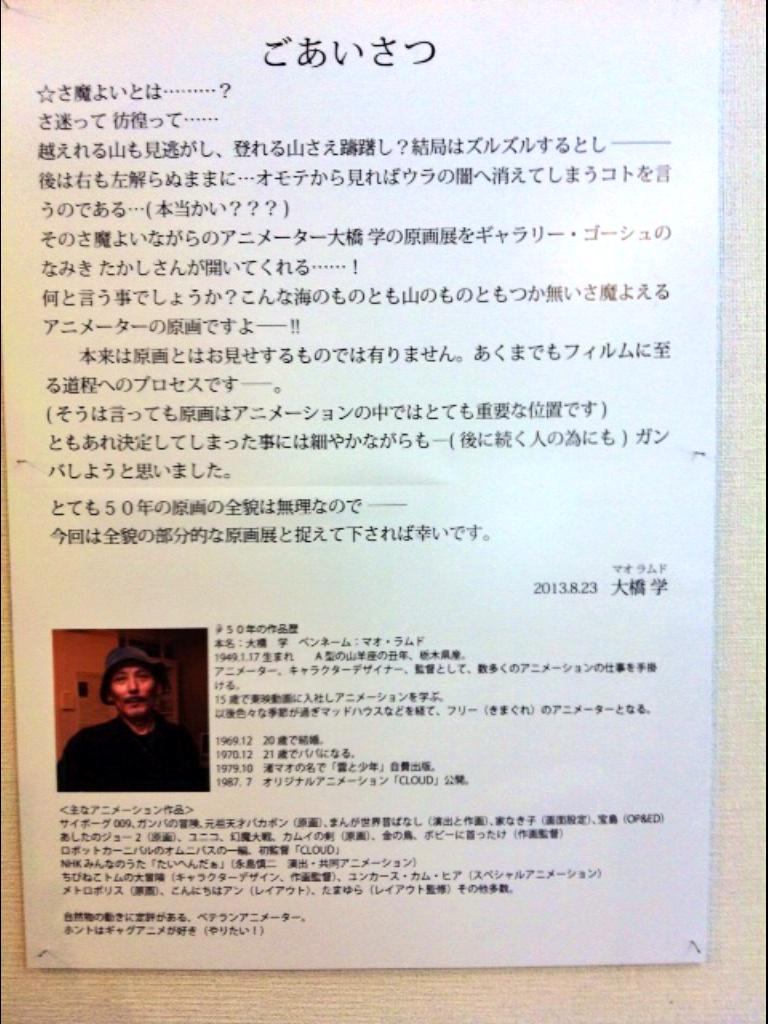 ごあいさつ
☆さ魔よいとは………？
さ迷って 彷徨って……
越えれる山も見逃がし、登れる山さえ躊躇し？結局はズルズルするとし ———
後は右も左解らぬままに…オモテから見ればウラの闇へ消えてしまうコトを言
うのである…( 本当かい？？？)
そのさ魔よいながらのアニメーター大橋 学の原画展をギャラリー・ゴーシュの
なみき たかしさんが開いてくれる……！
何と言う事でしょうか？こんな海のものとも山のものともつか無いさ魔よえる
アニメーターの原画ですよ—!!
本来は原画とはお見せするものでは有りません。あくまでもフィルムに至
る道程へのプロセスです—。
( そうは言っても原画はアニメーションの中ではとても重要な位置です )
ともあれ決定してしまった事には細やかながらも—( 後に続く人の為にも ) ガン
バしようと思いました。
とても５０年の原画の全貌は無理なので ——
今回は全貌の部分的な原画展と捉えて下されば幸いです。
マオ ラムド
2013.8.23 大橋 学
５０年の作品歴
本名：大橋 学 ペンネーム：マオ・ラムド
1949.1.17 生まれ Ａ型の山羊座の丑年、栃木県産。
アニメーター、キャラクターデザイナー、監督として、数多くのアニメーションの仕事を手掛
ける。
15 歳で東映動画に入社しアニメーションを学ぶ。
以後色々な季節が過ぎマッドハウスなどを経て、フリー（きまぐれ）のアニメーターとなる。
1969.12 20 歳で結婚。
1970.12 21 歳でパパになる。
1979.10 渚マオの名で「雲と少年」自費出版。
1987. 7 オリジナルアニメーション「CLOUD」公開。
＜主なアニメーション作品＞
サイボーグ 009、ガンバの冒険、元祖天才バカボン（原画）、まんが世界昔ばなし（演出と作画）、家なき子（画面設定）、宝島（OP&ED）
あしたのジョー 2（原画）、ユニコ、幻魔大戦、カムイの剣（原画）、金の鳥、ボビーに首ったけ（作画監督）
ロボットカーニバルのオムニバスの一編、初監督「CLOUD」
NHK みんなのうた「たいへんだぁ」（永島慎二 演出・共同アニメーション）
ちびねこトムの大冒険（キャラクターデザイン、作画監督）、ユンカース・カム・ヒア（スペシャルアニメーション）
メトロポリス（原画）、こんにちはアン（レイアウト）、たまゆら（レイアウト監修）その他多数。
自然物の動きに定評がある、ベテランアニメーター。
ホントはギャグアニメが好き（やりたい！）